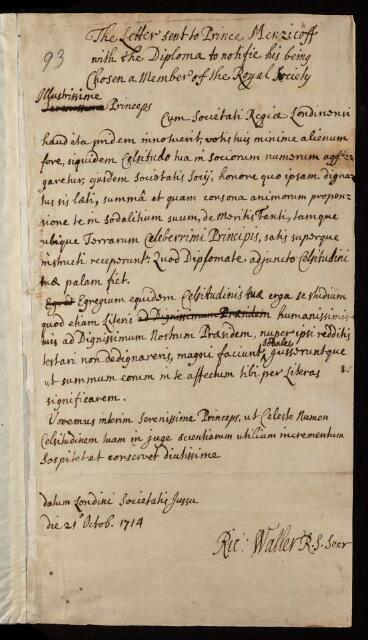 93
The Letter sent to Prince Menzicoff
with the Diploma to notifie his being
Chosen a Member of the Royal Society
Illustrissime
Serenissime Princeps
Cum Societati Regiæ Londinensi
haud ita pridem innotuerit, votis tuis minime alienum
fore, siquidem Celsitudo tua in sociorum numerum aggre
garetur, ejusdem Societatis Socij, honore quo ipsam digna
tus sis læti, summâ et quam consona animorum propen
sione te in sodalitium suum, de Meritis Tanti, tamque
ubique Terrarum Celeberrimi Principis, satis superque
instructi receperunt: Quod Diplomate adjuncto Celsitudini
tuæ palam fiet.
Egregium equidem Celsitudinis tuæ erga se studium
quod etiam Literis ad Dignissimum Præsidem humanissimis
tuis ad Dignissimum Nostrum Præsidem, nuper ipsi redditis
testari non dedignareris, magni faciunt Sodales jusseruntque
ut summum eorum in te affectum tibi per Literas
significarem.
Vovemus interim Serenissime Princeps, ut Celeste Numen
Celsitudinem tuam in juge scientiarum utilium incrementum
sospitet et conservet diutissime
datum Londini Societatis Jussu
die 21° Octob. 1714
Ric: Waller R.S. Secr